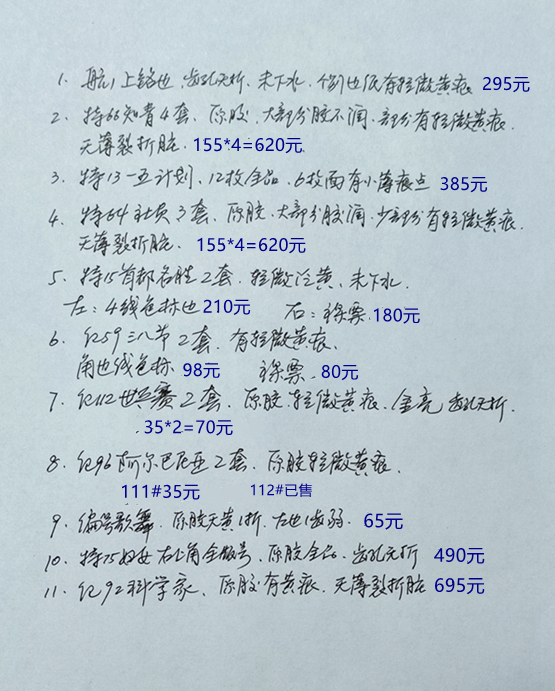 1. 航1上铭边、齿孔无折、未下水、个别边纸有轻微黄痕 295元
2. 特66知青4套、原胶、大部分胶不润、部分有轻微黄痕、
无薄裂折脏 155*4=620元
3. 特13一五计划、12枚全品、6枚面有小薄痕点 385元
4. 特64社员3套、原胶、大部分胶润、少部分有轻微黄痕、
无薄裂折脏、 155*4=620元
5. 特15首都名胜2套、轻微泛黄、未下水、
左:4线色标边 210元 右:裸票 180元
6. 纪59三八节2套、有轻微黄痕、
角边线色标 98元 裸票、80元
7. 纪112世乒赛2套、原胶、轻微黄痕、金亮 齿孔无折、
35*2=70元
8. 纪96阿尔巴尼亚2套、原胶轻微黄痕、
111#35元 112#已售
9. 编号歌舞、原胶无黄1折、左边1齿弱、65元
10. 特75妇女右上角全版号、原胶全品、齿孔无折 490元
11. 纪92科学家、原胶有黄痕、无薄裂折脏 695元